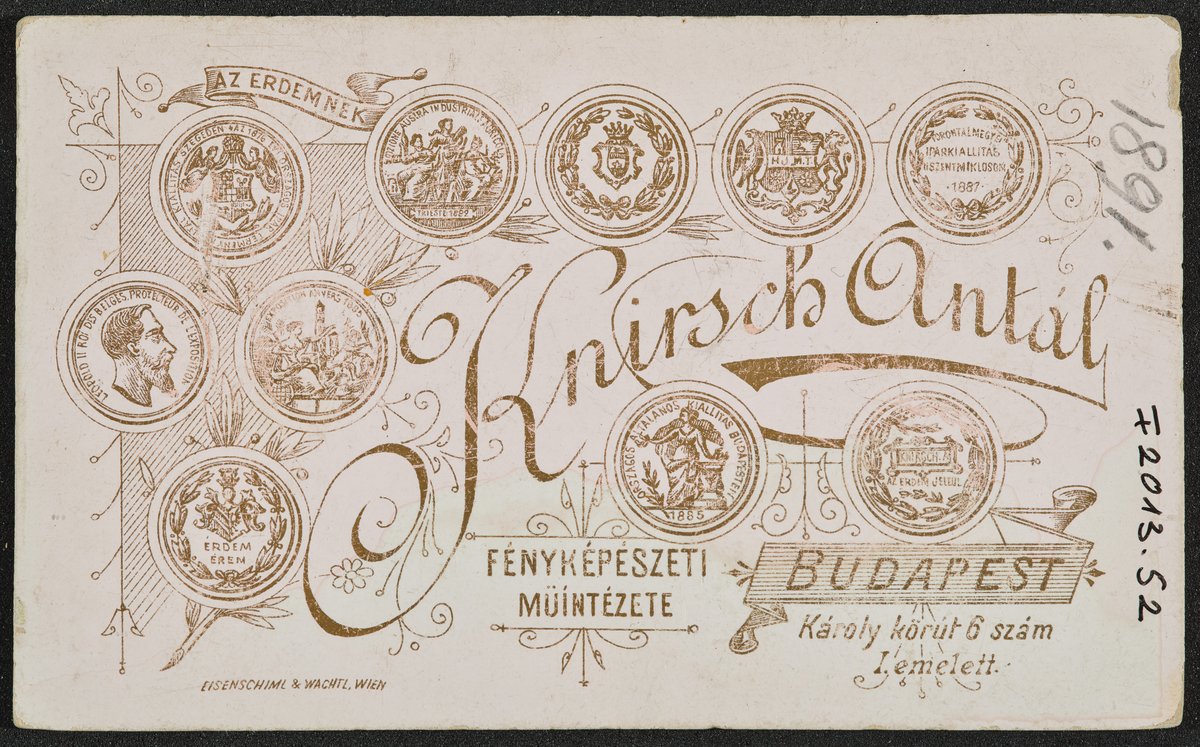 AZ ERDEMNEK
TRIESTE 1882
H.J.M.T.
IPARKIÁLLITÁS
1887
1891.
LEOPOLD II ROI DES BELGES, PROTECTEUR DE L'EXPOSITION
Knirsch Antál
ORSZÁGOS ÁLTALÁNOS KIÁLLITÁS BUDAPESTEN
1885
KNIRSCH A.
AZ ERDEM JELEÜL
ÉRDEM
ÉREM
FÉNYKÉPÉSZETI
MÜINTÉZETE
BUDAPEST
Károly körút 6 szám
I. emelett.
EISENSCHIML & WACHTL, WIEN
F 2013.52